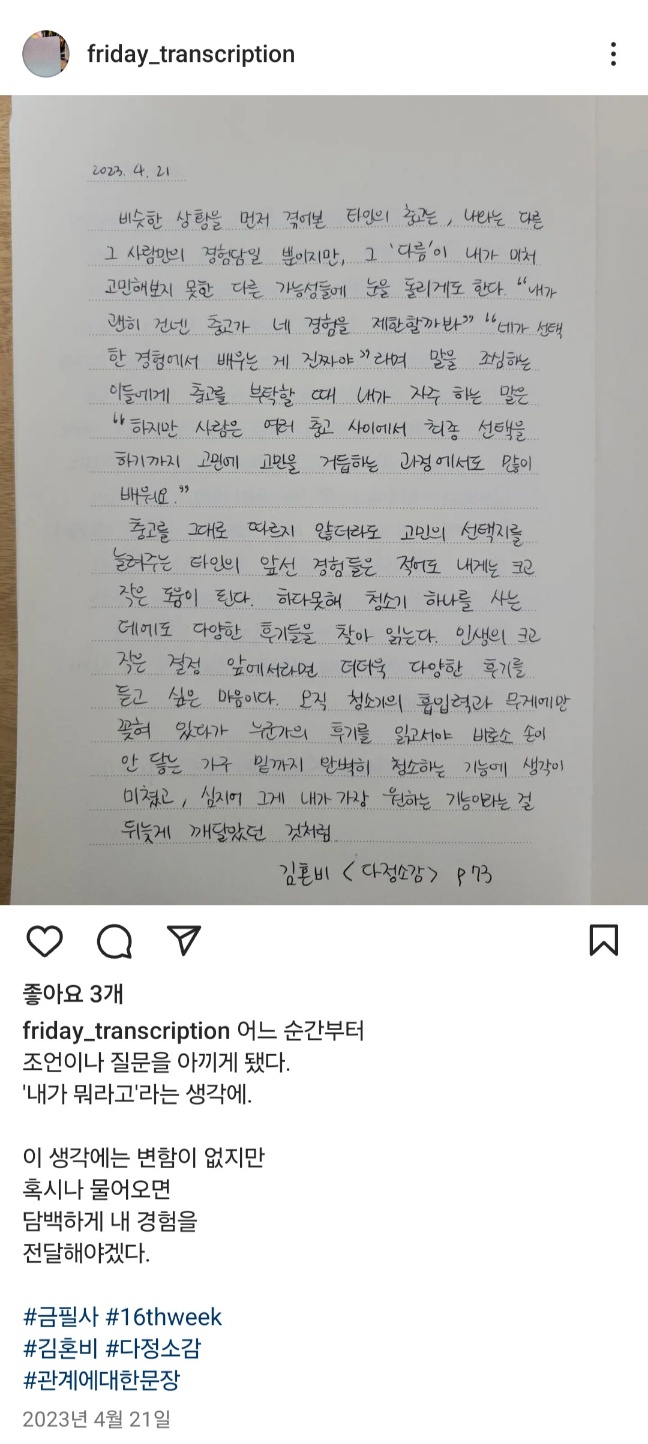 friday_transcription
2023. 4. 21
비슷한 상황을 먼저 겪어본 타인의 충고는, 나와는 다른
그 사람만의 경험담일 뿐이지만, 그 '다름'이 내가 미처
고민해보지 못한 다른 가능성들에 눈을 돌리게도 한다. "내가
괜히 건넨 충고가 네 경험을 제한할까봐" "네가 선택
한 경험에서 배우는 게 진짜야"라며 말을 조심하는
이들에게 충고를 부탁할 때 내가 자주 하는 말은
"하지만 사람은 여러 충고 사이에서 최종 선택을
하기까지 고민에 고민을 거듭하는 과정에서도 많이
배워요."
충고를 그대로 따르지 않더라도 고민의 선택지를
늘려주는 타인의 앞선 경험들은 적어도 내게는 크고
작은 도움이 된다. 하다못해 청소기 하나를 사는
데에도 다양한 후기들을 찾아 읽는다. 인생의 크고
작은 결정 앞에서라면 더더욱 다양한 후기를
듣고 싶은 마음이다. 오직 청소기의 흡입력과 무게에만
꽂혀 있다가 누군가의 후기를 읽고서야 비로소 손이
안 닿는 가구 밑까지 완벽히 청소하는 기능에 생각이
미쳤고, 심지어 그게 내가 가장 원하는 기능이라는 걸
뒤늦게 깨달았던 것처럼
김혼비 <다정소감> p 73
좋아요 3개
friday_transcription 어느 순간부터
조언이나 질문을 아끼게 됐다.
'내가 뭐라고'라는 생각에.
이 생각에는 변함이 없지만
혹시나 물어오면
담백하게 내 경험을
전달해야겠다.
#금필사 #16thweek
#김혼비 #다정소감
#관계에대한문장
2023년 4월 21일